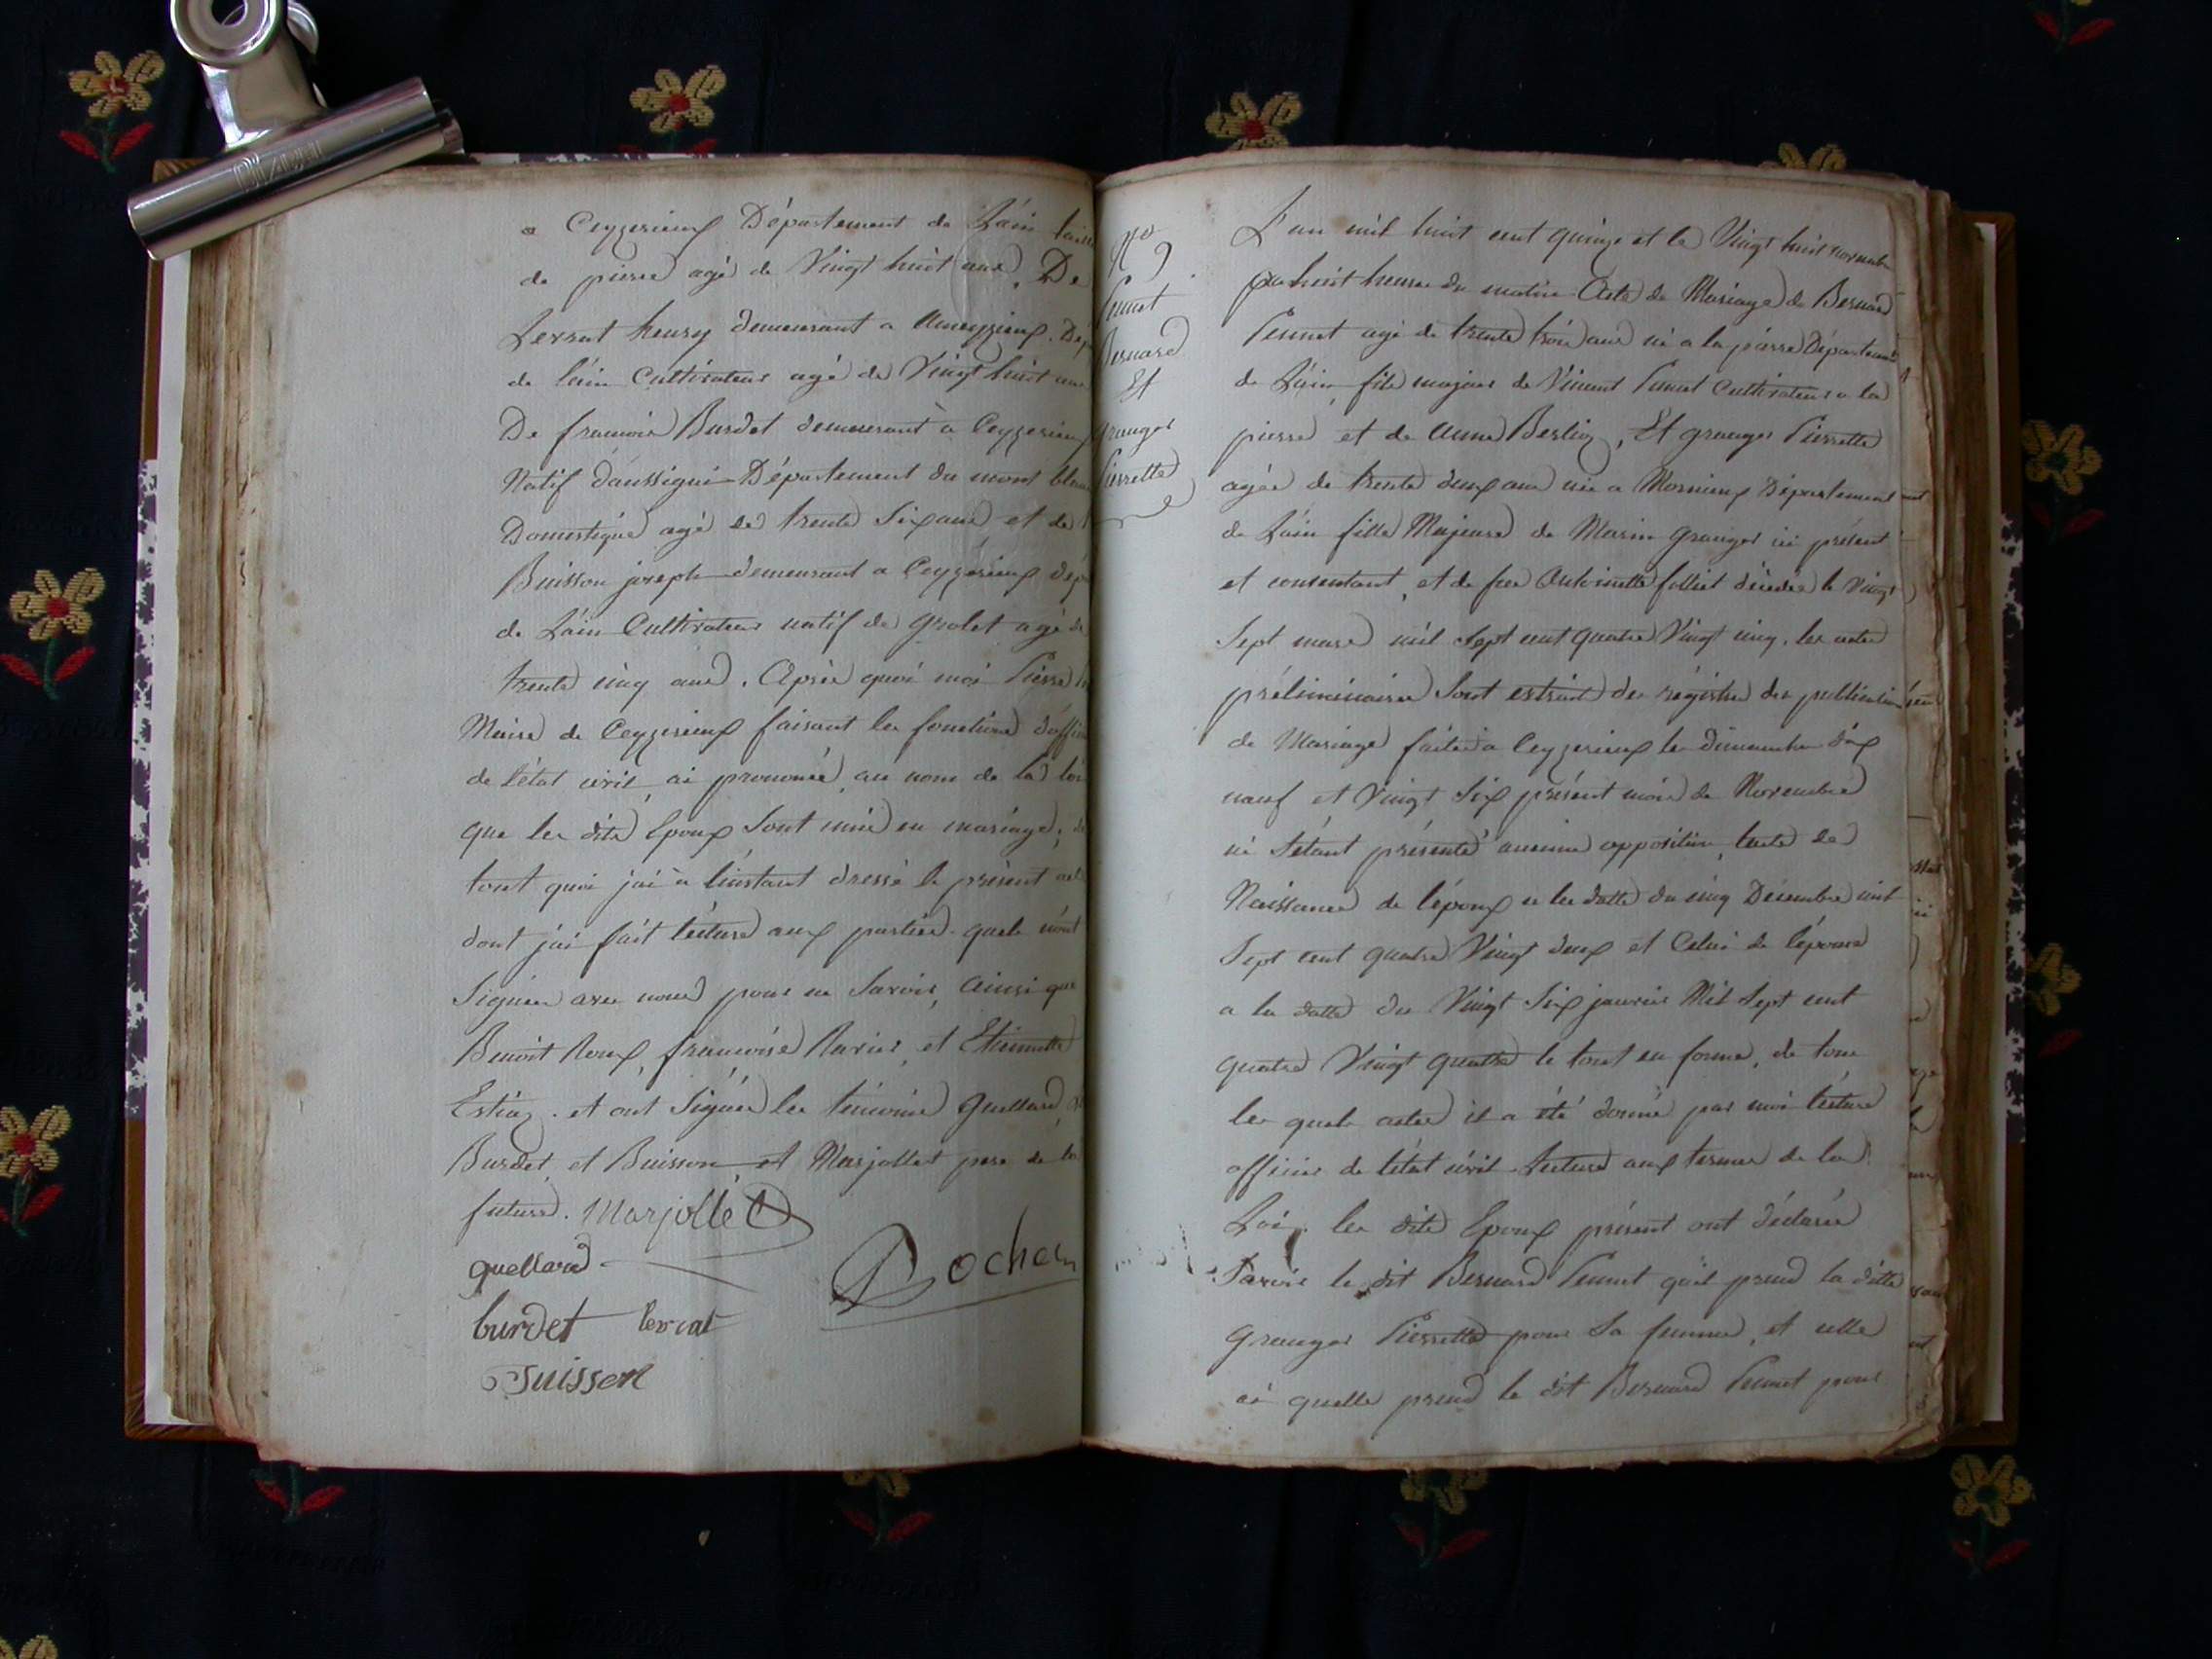 a Ceyzerieux Département de Lain taill
de pierre agé de Vingt huit ans, De
Lerrat henry demeurant a Ameyzieux. Dép
de lain Cultivateur agé de Vingt huit ans
De francois Burdet demeurant à Ceyzerieux
Natif daussigni Département du mont blanc
Domestique agé de trente Six ans et de
Buisson joseph demeurant a Ceyzerieux dép
de Lain Cultivateur natif de grolet agé de
trente cinq ans. Après quoi moi Pierre
Maire de Ceyzerieux faisant les fonctions doffici
de létat civil, ai prononcé, au nom de la loi
que les dits Epoux Sont unis en mariage, de
tout quoi jai à linstant dressé le présent act
dont jai fait lécture aux parties quels nont
Signées avec nous pour ne Savoir, ainsi que
Benoit Roux, francoise Ravier, et Etiennette
Estiez. et ont Signés les témoins Quellard,
Burdet, et Buisson et Marjollet pere de la
future. Marjollet
quellard
Rochen
burdet Lerrat
Buisson
No 9
Pennet
Bernard
Et
Granger
Pierrette
L'an mil huit cent quinze et le Vingt huit novembre
pa huit heures du matin Acte de Mariage de Bernard
Pennet agé de trente trois ans né a la pierre Département
de Lain, fils majeur de Vincent Pennet Cultivateur a la
pierre et de Anne Berlioz, Et granger Pierrette
agée de trente deux ans née a Mornieux Département
de Lain fille Majeure de Marin Granger ici présent
et consentant, et de feu Antoinette folliet décédée le Vingt
Sept mars mil Sept cent quatre Vingt cinq. les actes
préliminaires Sont extrait des régistres des publications
de Mariage faites a Ceyzerieux les dimanches dix
neuf et Vingt Six présent mois de Novembre
ni Sétant présenté aucune opposition, lacte de
Naissance de lépoux a la datte du cinq Décembre mil
Sept cent quatre Vingt deux et Celui de lépouse
a la datte du Vingt Six janvier Mil Sept cent
quatre Vingt quatre le tout en forme, de tous
les quels actes il a été donné par moi lécture
officier de létat civil lecture aux termes de la
Loi. les dits Epoux présent ont déclarés
Savoir le dit Bernard Pennet quil prend la ditte
Granger Pierrette pour Sa femme, et celle
ci quelle prend le dit Bernard Pennet pour